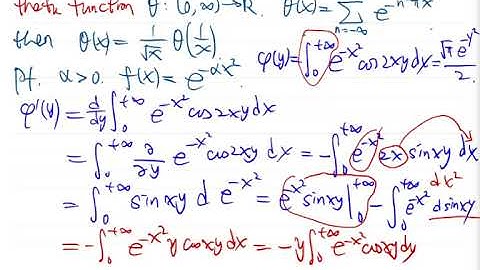 theta function θ: (0,∞)→R. θ(x)=∑_{n=-∞} e^{-n²πx}
then θ(x)= 1/√x θ(1/x)
pf. α>0. f(x)=e^{-αx²}. φ(y)=∫_0^{+∞} e^{-x²} cos2xy dx = √π e^{-y²}/2.
φ'(y)= d/dy ∫_0^{+∞} e^{-x²} cos2xy dx
=∫_0^{+∞} ∂/∂y e^{-x²} cos2xy dx = -∫_0^{+∞} e^{-x²} 2x sinxy dx
dx²
=∫_0^{+∞} sinxy d e^{-x²} = e^{-x²} sinxy |_0^{+∞} - ∫_0^{+∞} e^{-x²} dsinxy
=-∫_0^{+∞} e^{-x²} y cosxy dx = -y∫_0^{+∞} e^{-x²} cosxy dy